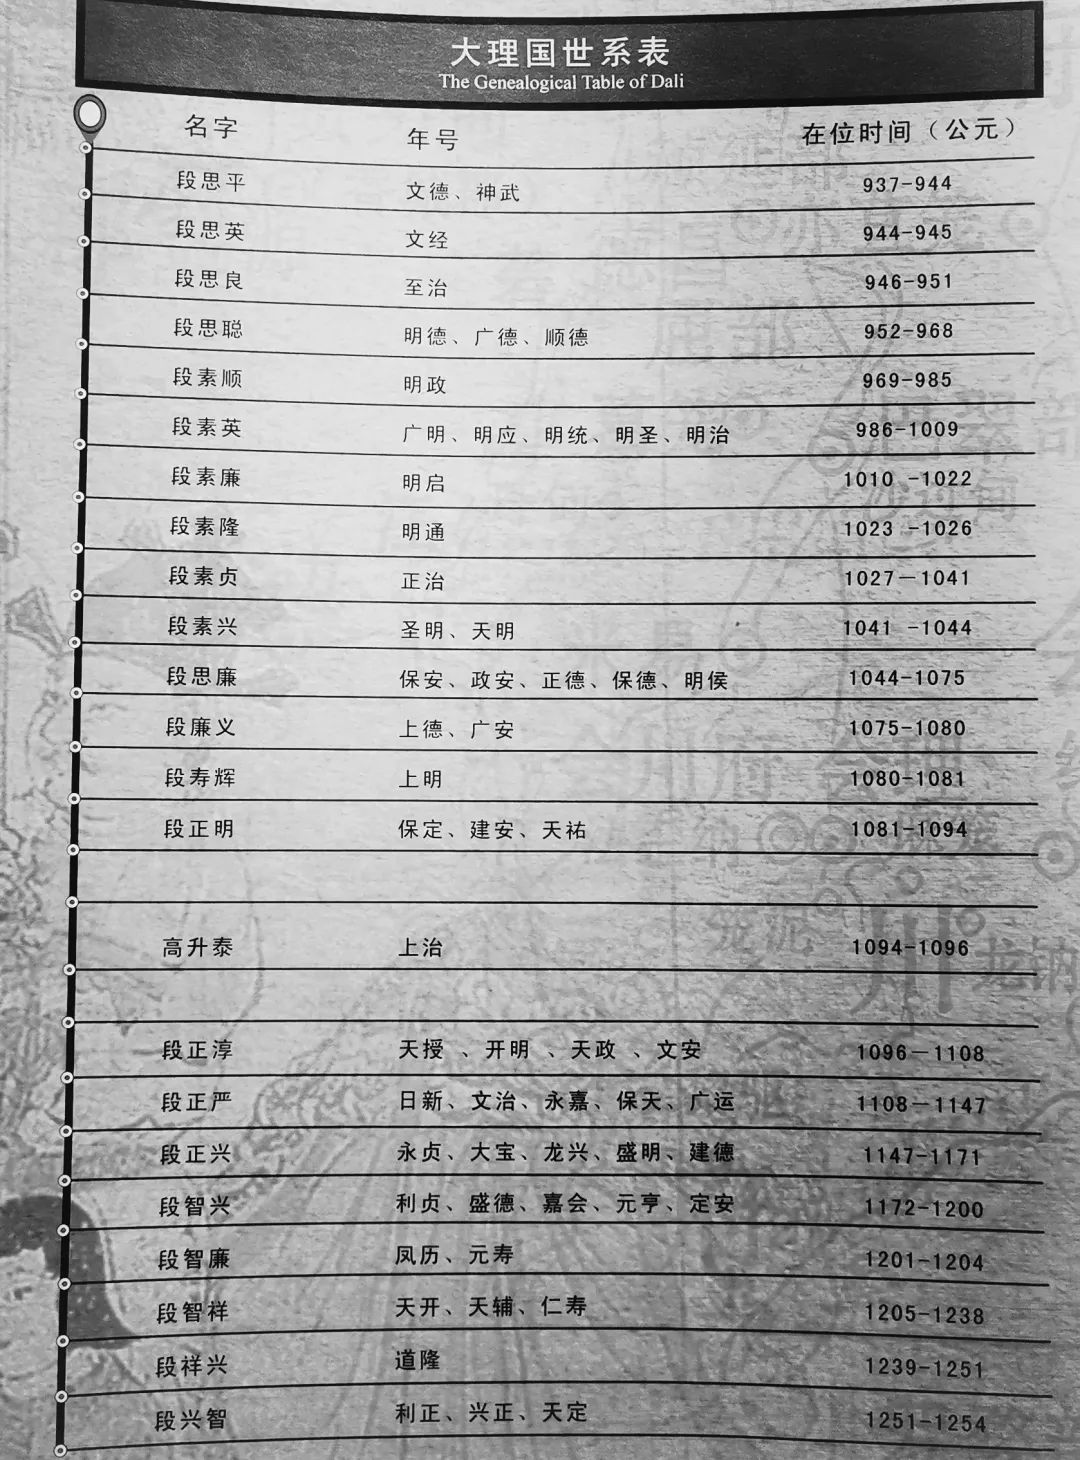 大理国世系表
The Genealogical Table of Dali
名字 年号 在位时间（公元）
段思平 文德、神武 937-944
段思英 文经 944-945
段思良 至治 946-951
段思聪 明德、广德、顺德 952-968
段素顺 明政 969-985
段素英 广明、明应、明统、明圣、明治 986-1009
段素廉 明启 1010 -1022
段素隆 明通 1023 -1026
段素贞 正治 1027－1041
段素兴 圣明、天明 1041 -1044
段思廉 保安、政安、正德、保德、明侯 1044-1075
段廉义 上德、广安 1075-1080
段寿辉 上明 1080-1081
段正明 保定、建安、天祐 1081-1094
高升泰 上治 1094-1096
段正淳 天授 、开明 、天政 、文安 1096－1108
段正严 日新、文治、永嘉、保天、广运 1108－1147
段正兴 永贞、大宝、龙兴、盛明、建德 1147-1171
段智兴 利贞、盛德、嘉会、元亨、定安 1172-1200
段智廉 凤历、元寿 1201-1204
段智祥 天开、天辅、仁寿 1205-1238
段祥兴 道隆 1239-1251
段兴智 利正、兴正、天定 1251-1254